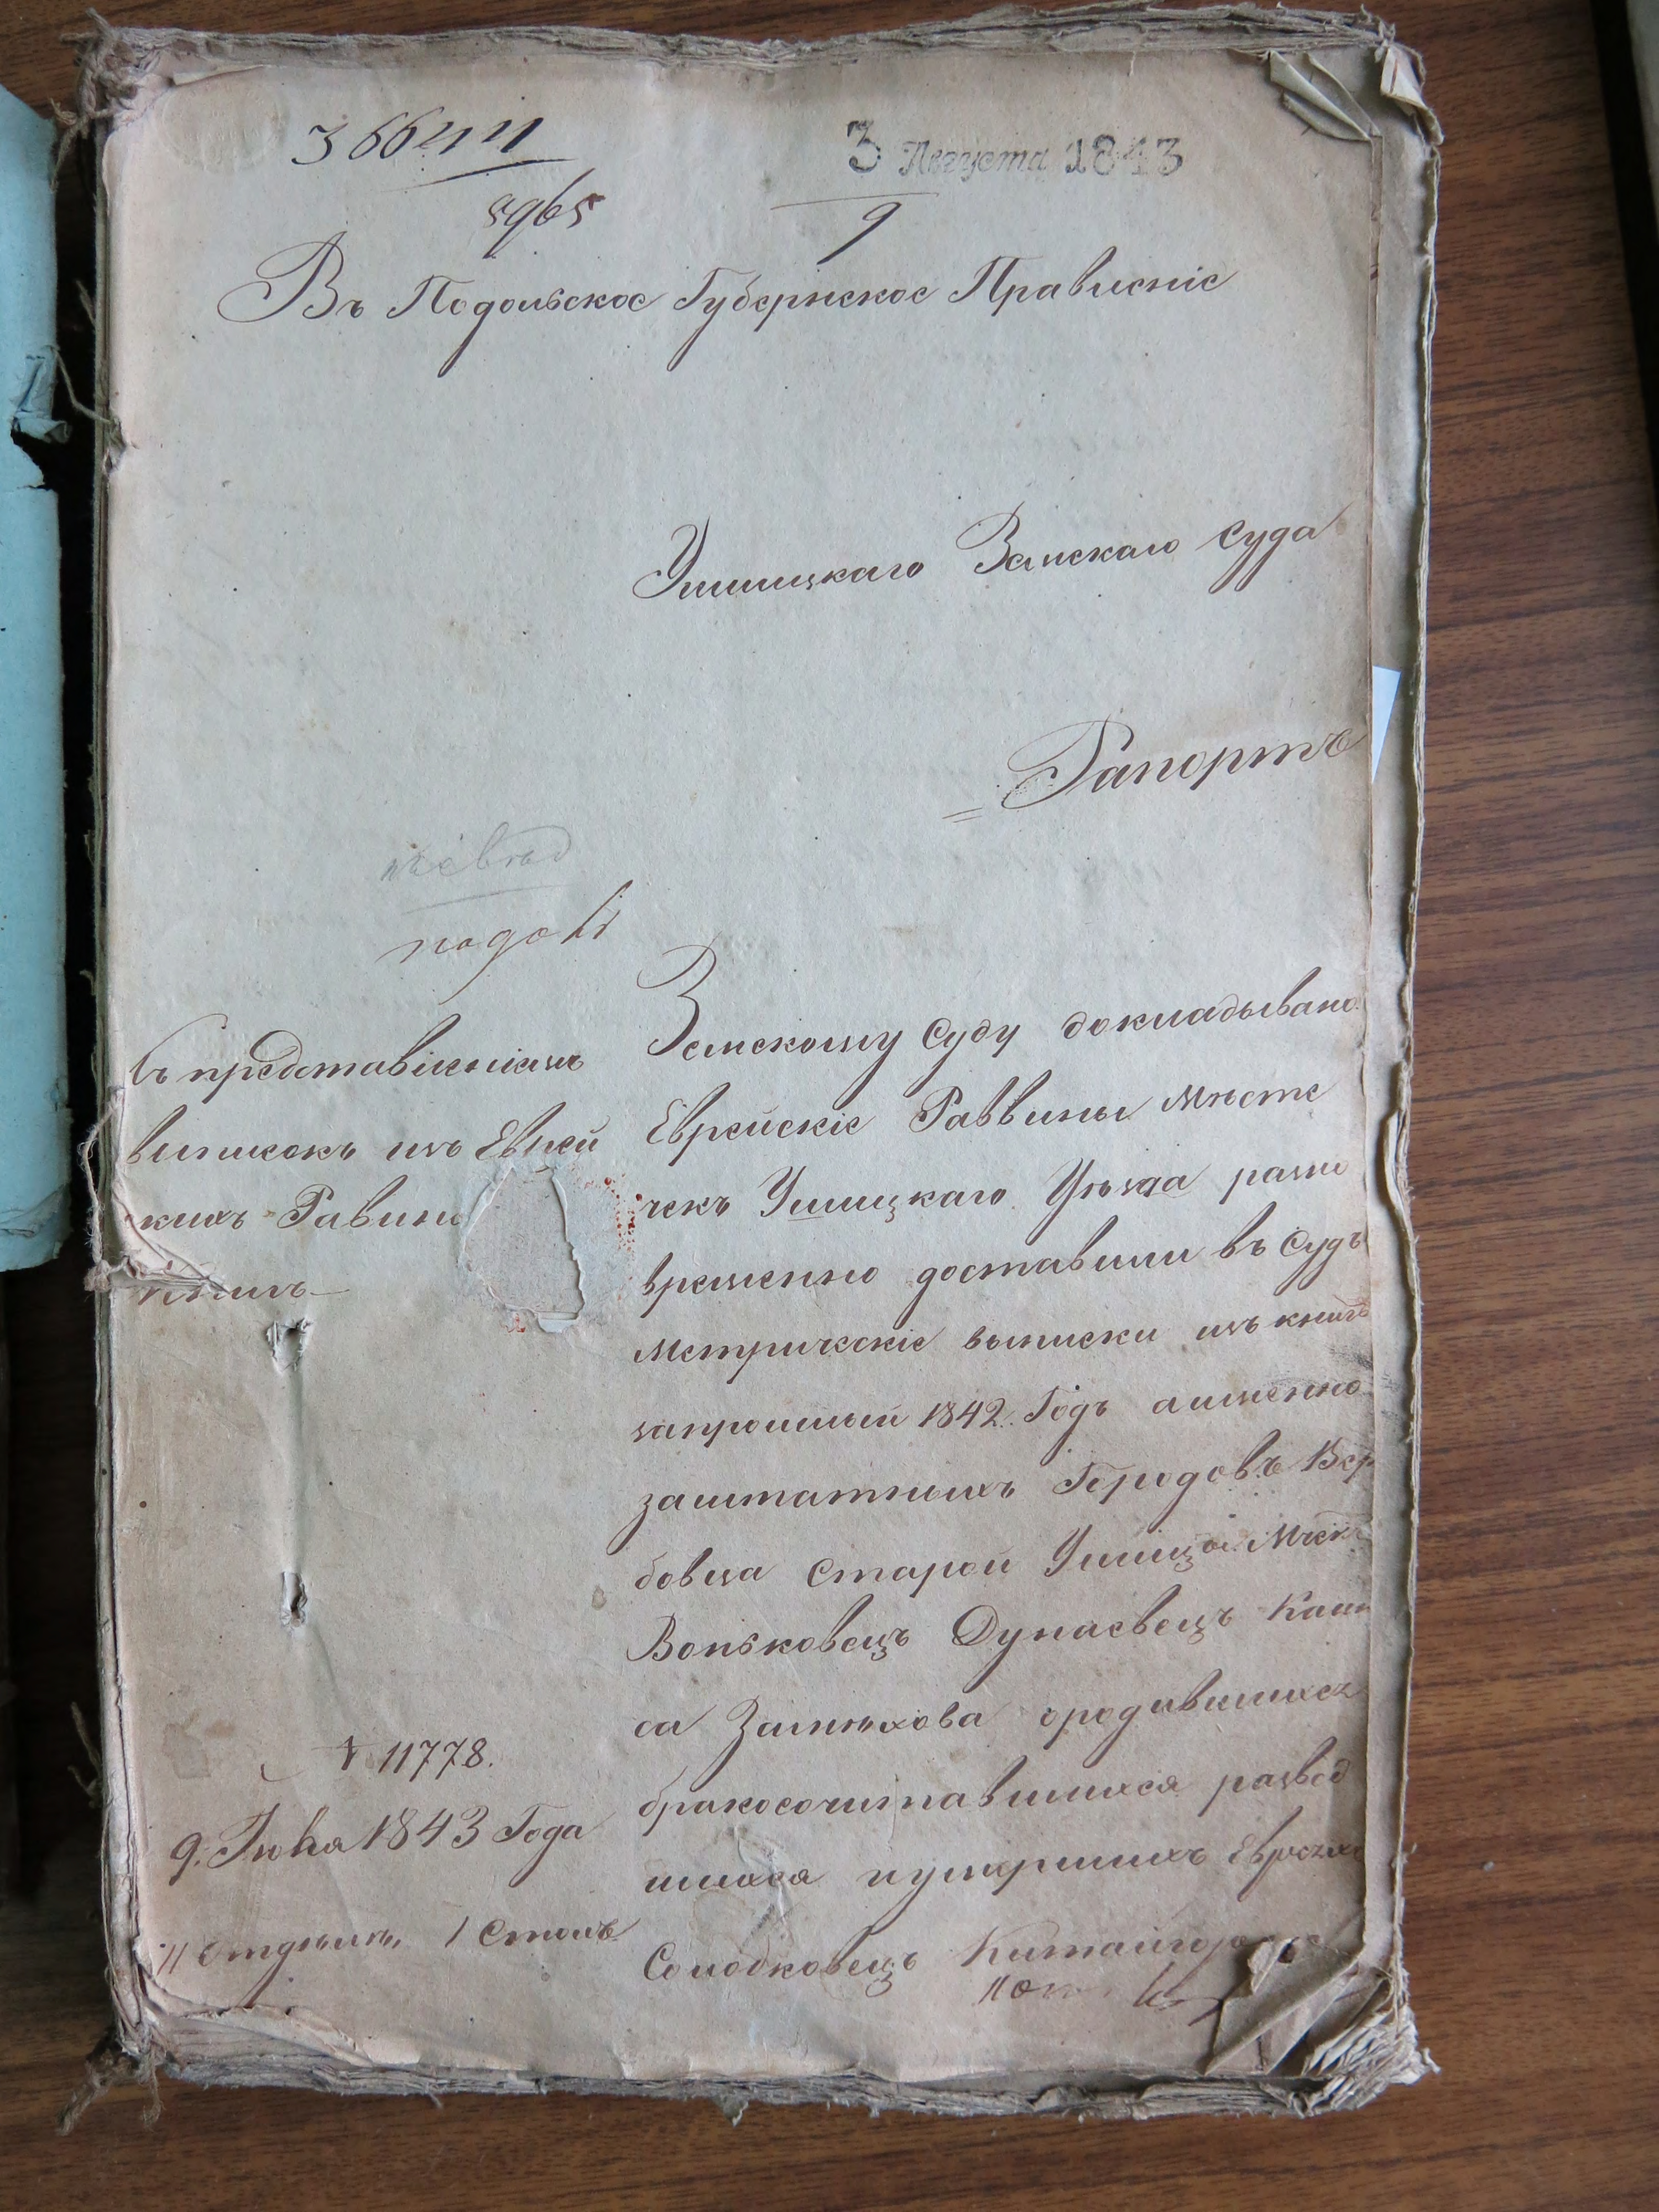 3 Августа 1843
5965
9
Въ Подольское Губернское Правление
Ушицкаго Земскаго Суда
Рапортъ
Съ представлениемъ
выписокъ изъ Еврей
скихъ Равин
Земскому Суду докладывано
Еврейскіе Раввины мѣсте
чекъ Ушицкаго Уѣзда разно
временно доставили въ Судъ
Метрическіе выписки изъ книгъ
запрошлый 1842. Годъ аименно
заштатныхъ Городовъ Вер
бовца Старой Ушицы Мѣстеч
Воньковецъ Дунаевецъ Калю
са Замѣхова ородившихся
бракосочитавшихся развод
шихся иумершихъ Евреяхъ
Солобковецъ Китайгоро
№ 11778.
9. Июля 1843 Года
II Отдѣлен. 1 Столъ